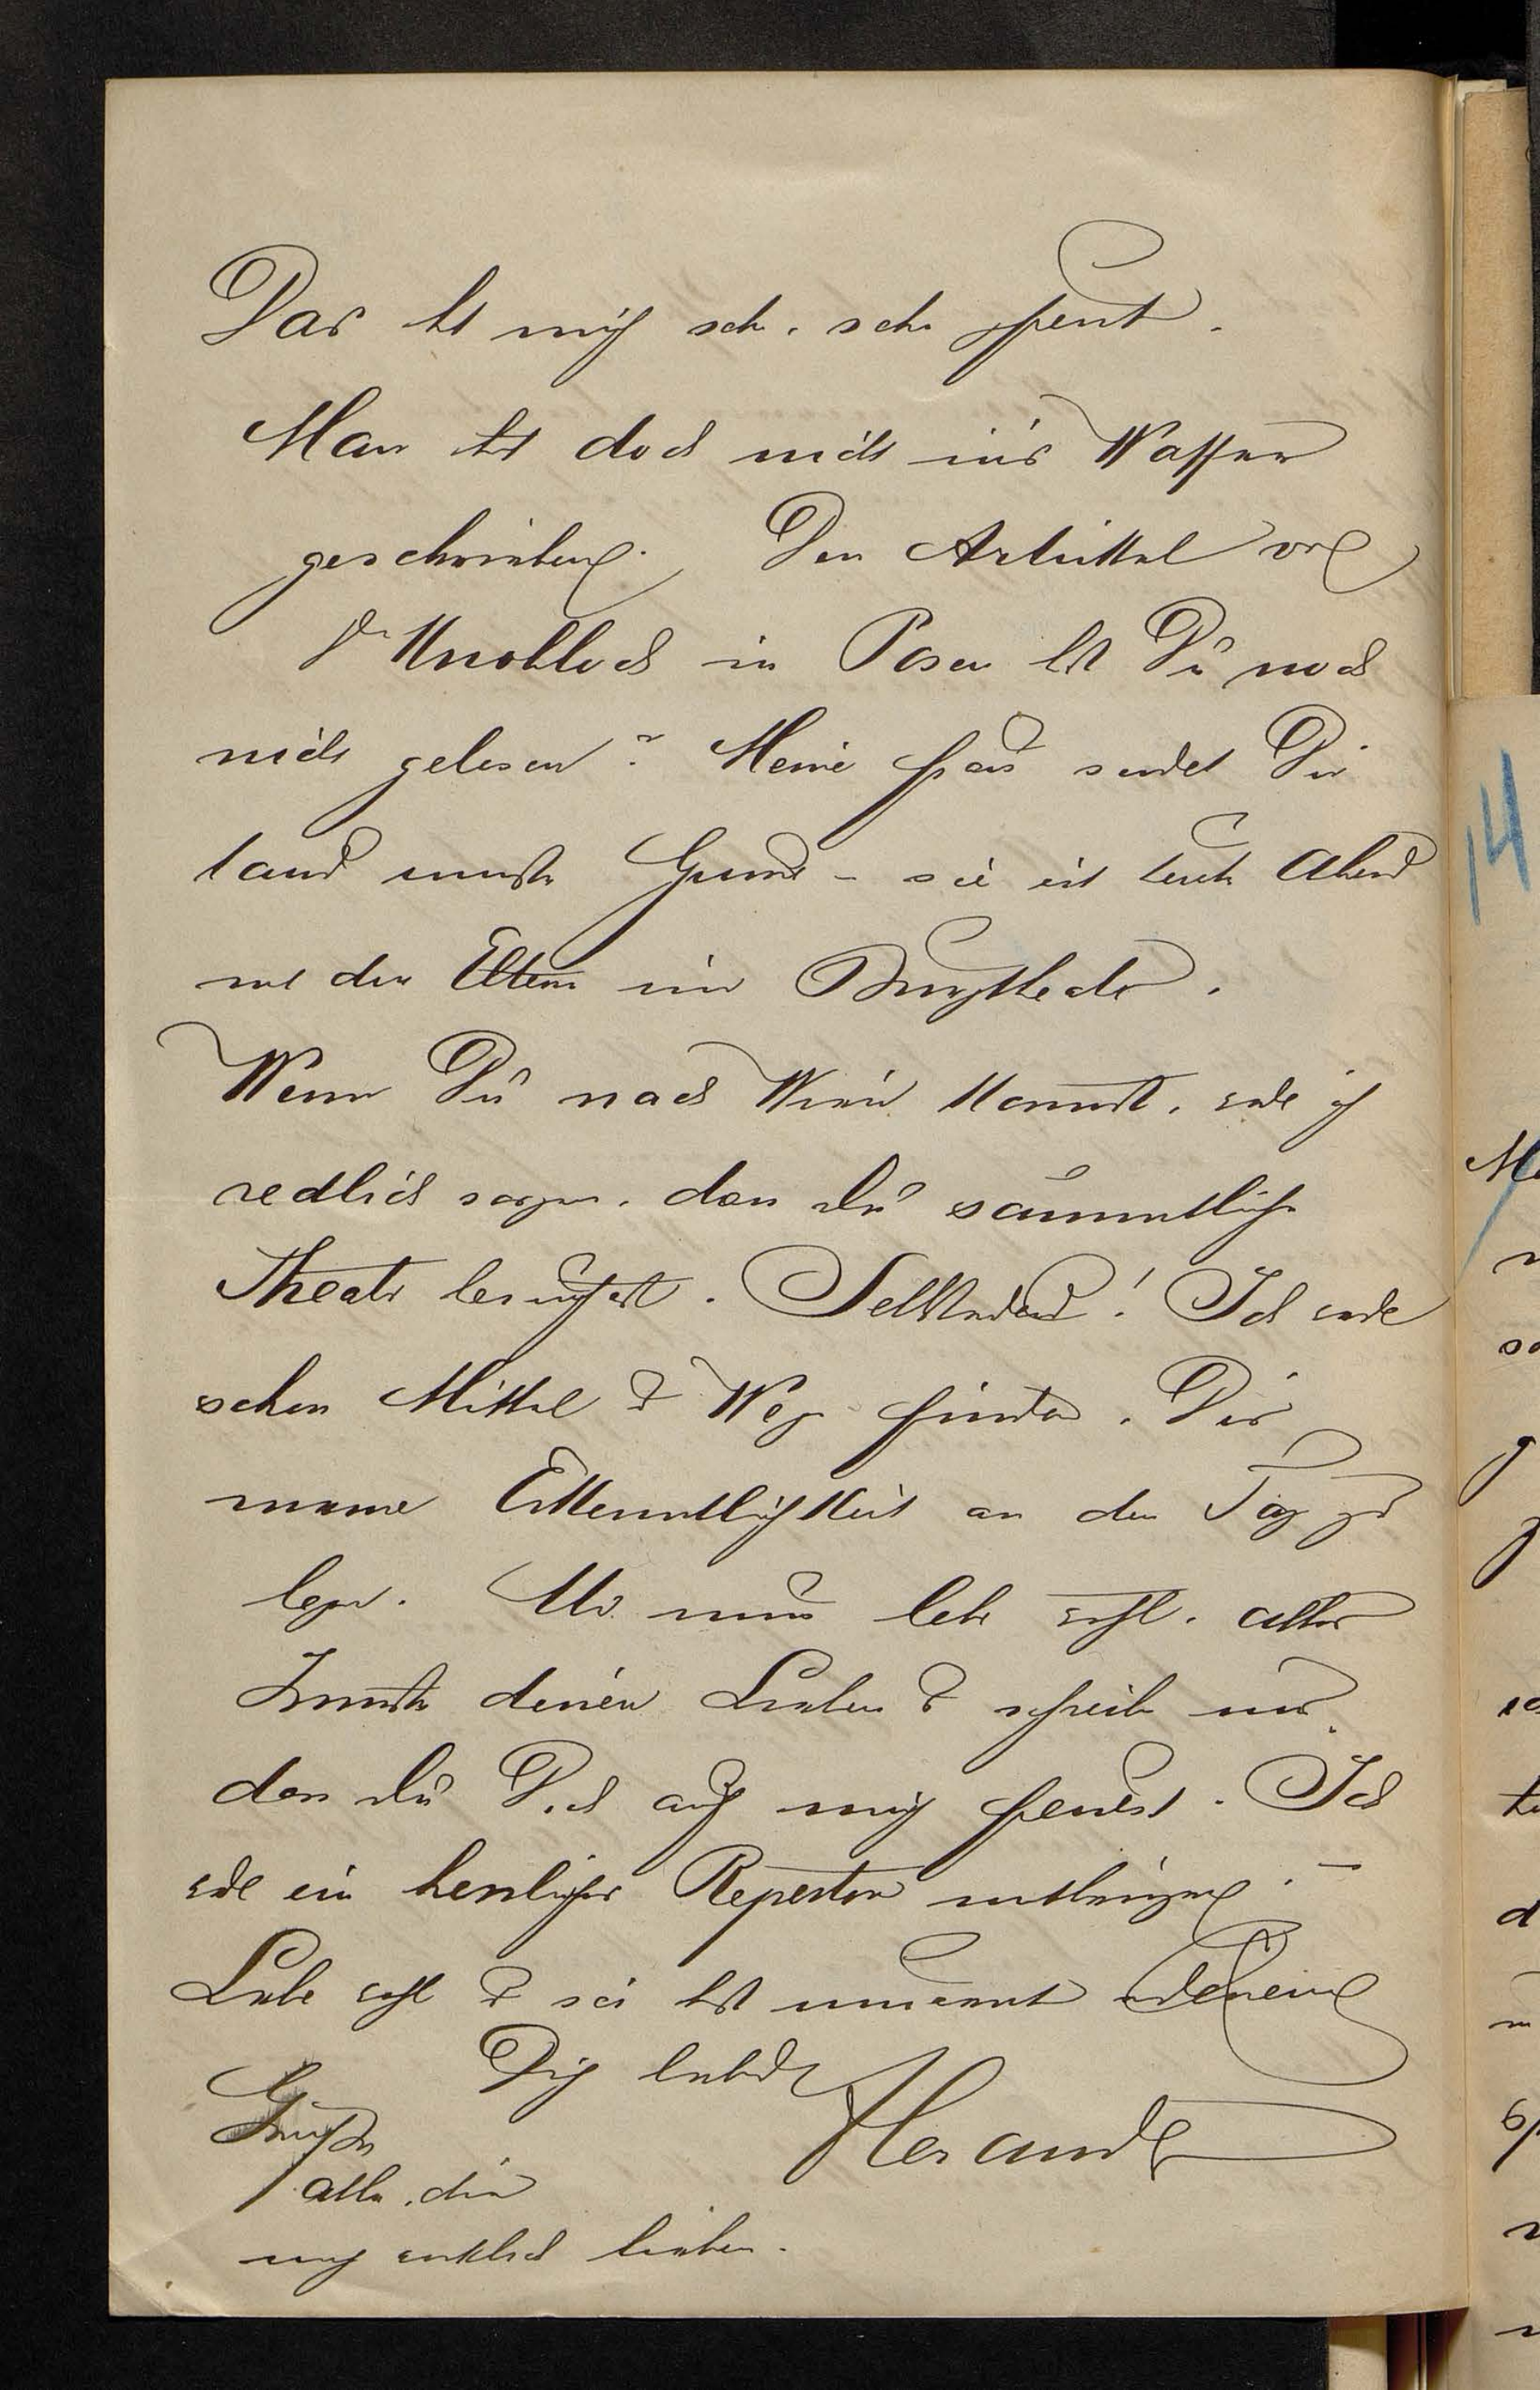 Das hat mich sehr, sehr gfreut.
Man hat doch nicht in's Wasser
geschrieben. Den Artikkel von
Dr Knobloch in Posen hast Du noch
nicht gelesen? Meine Frau sendet Dir
tausend Grüsse – sie ist heute Abend
mit den Eltern im Burgtheater.
Wenn Du nach Wien kommst, werde ich
redlich sorgen, dass Du sämmtliche
Theater besuchst. Selbstredend! Ich werde
schon Mittel & Wege finden, Dir
meine Erkenntlichkeit an den Tag zu
legen. Also nun lebe wohl, alles
deinen Lieben & schreibe mir,
dass Du Dich auf mich freuest. Ich
werde ein herrliches Repertoir mitbringen. –
Lebe wohl & sei herzlichst umarmt
Dich liebender
Grüsse
alle, die
mich wirklich lieben.
14